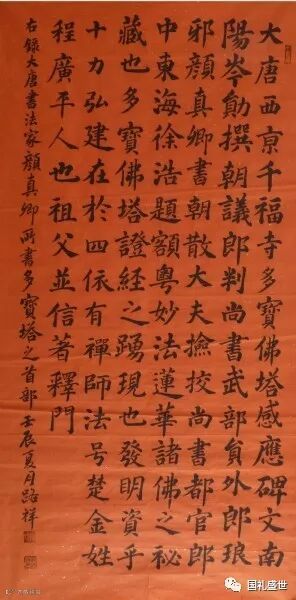 大唐西京千福寺多寶佛塔感應碑文南
陽岑勛撰朝議郎判尚書武部貟外郎琅
邪顏真卿書朝散大夫撿挍尚書都官郎
中東海徐浩題額粵妙法蓮華諸佛之秘
藏也多寶佛塔證經之踴現也發明資乎
十力弘建在於四依有禪師法号楚金姓
程廣平人也祖父並信著釋門
右錄大唐書法家顏真卿所書多寶塔之首部壬辰夏月路祥
国礼盛世